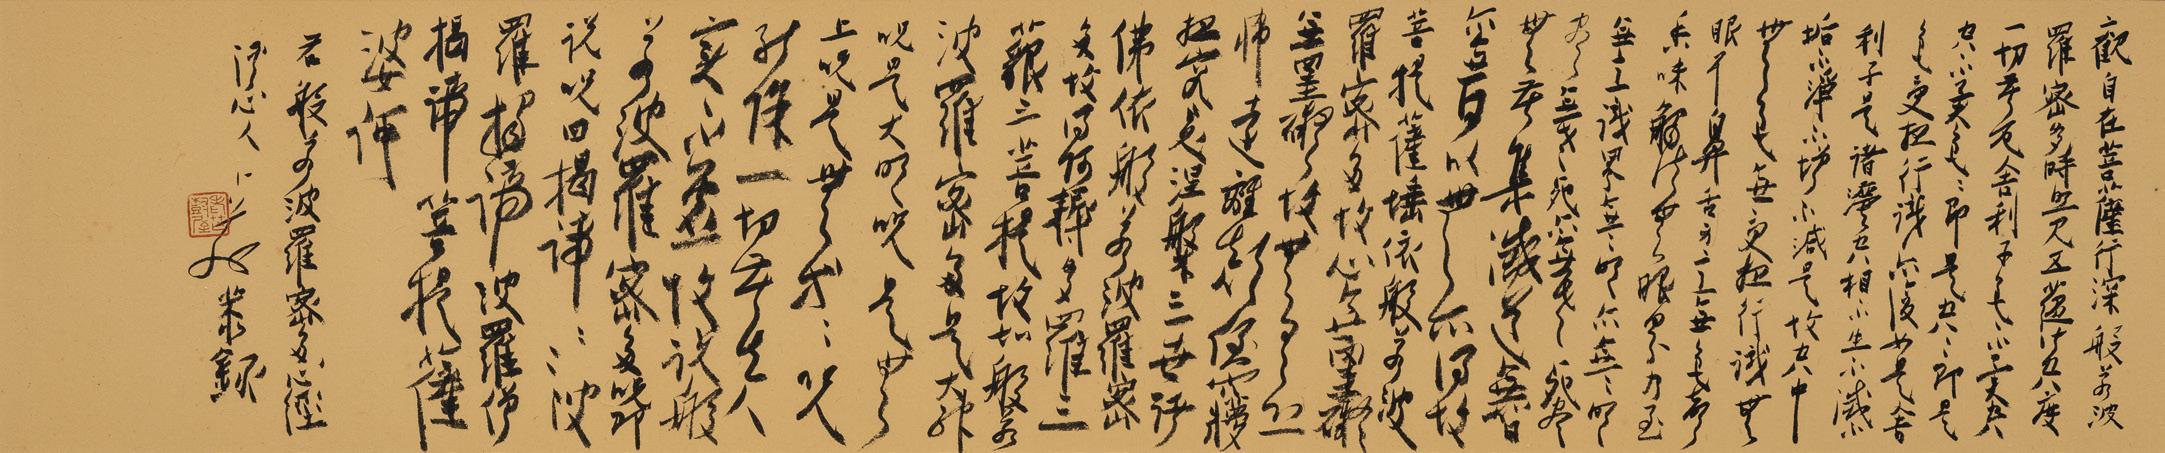 觀自在菩薩行深般若波
羅密多時照見五蘊皆空度
一切苦厄舍利子色不異空
空不異色色即是空空即是
色受想行識亦復如是舍
利子是諸法空相不生不滅不
垢不淨不增不減是故空中
無色無受想行識無
眼耳鼻舌身意無色聲
香味觸法無眼界乃至
無意識界無無明亦無無明
盡乃至無老死亦無老死盡
無苦集滅道無智
亦無得以無所得故
菩提薩埵依般若波
羅密多故心無罣礙
無罣礙故無有恐
怖遠離顛倒夢
想究竟涅槃三世諸
佛依般若波羅密
多故得阿耨多羅三
藐三菩提故知般若
波羅密多是大神
咒是大明咒是無
上咒是無等等咒
能除一切苦真
實不虛故說般
若波羅密多咒即
說咒曰揭諦揭諦波
羅揭諦波羅僧
揭諦菩提薩
婆訶
般若波羅密多心經
心人
錄